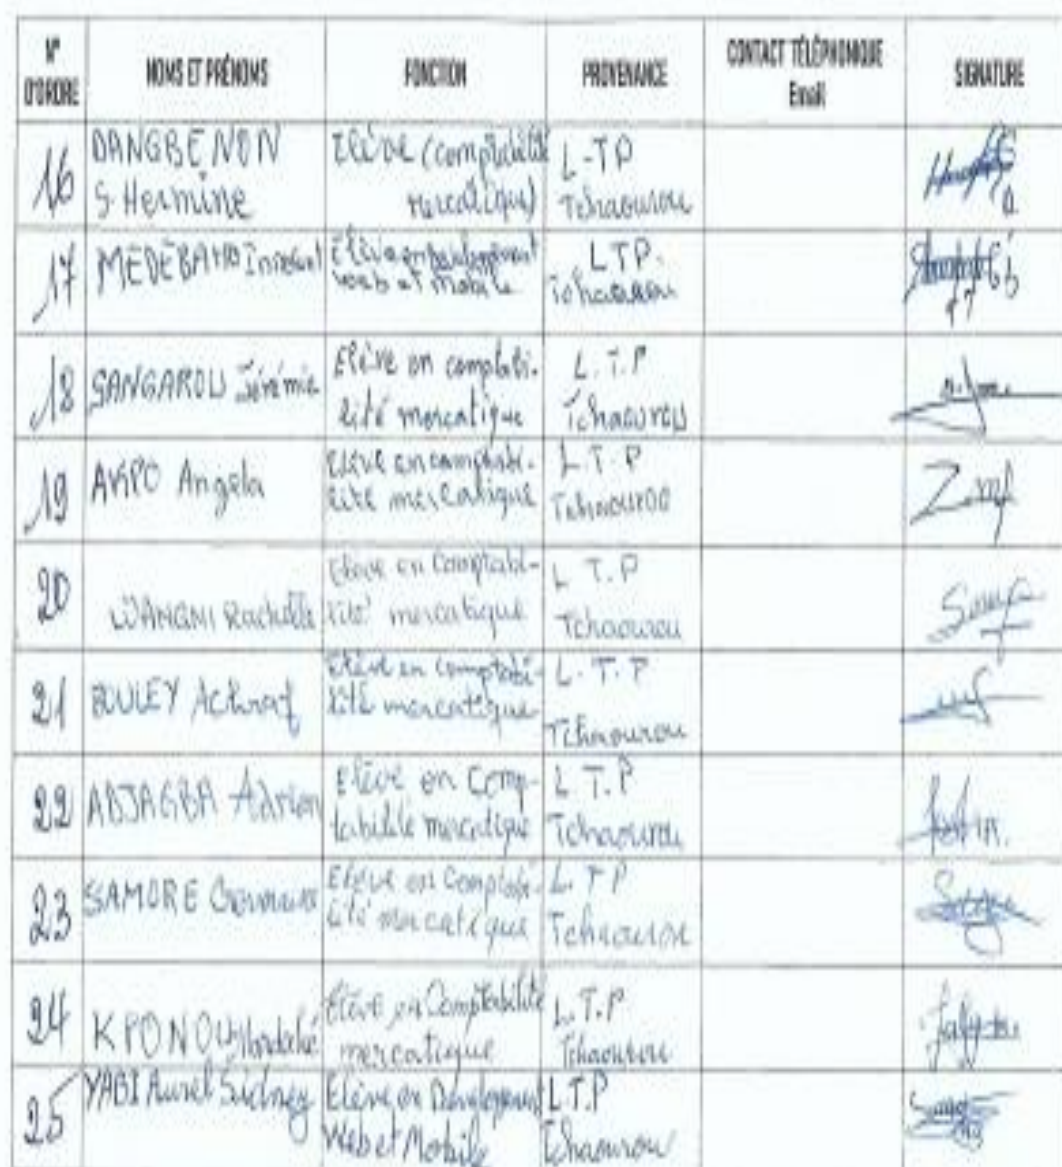 N° D'ORDRE
NOMS ET PRÉNOMS
FONCTION
PROVENANCE
CONTACT TÉLÉPHONIQUE
Email
SIGNATURE
16
DANGBENON
S. Hermine
Elève (comptabilité
mercatique)
L-TP
Tchaourou
17
MEDEBAHO Innocent
Elève en développement
web et mobile
LTP.
Tchaourou
18
SANGAROU Jérémie
Elève en comptabi-
lité mercatique
L.T.P
Tchaourou
19
AKPO Angela
Elève en comptabi-
lité mercatique
L.T.P
Tchaourou
20
Elève en Comptabi-
lité mercatique
L T.P
Tchaourou
21
BOULEY Achraf
Elève en comptabi-
lité mercatique
L.T.P
Tchaourou
22
ADJAGBA Adrien
Elève en Comp-
tabilité mercatique
L T.P
Tchaourou
23
SAMORE
Elève en Comptabi-
lité mercatique
L.T P
Tchaourou
24
KPONOU
Elève en Comptabilité
mercatique
L.T.P
Tchaourou
25
YABI Aurel Sidney
Elève en Développement
Web et Mobile
L.T.P
Tchaourou